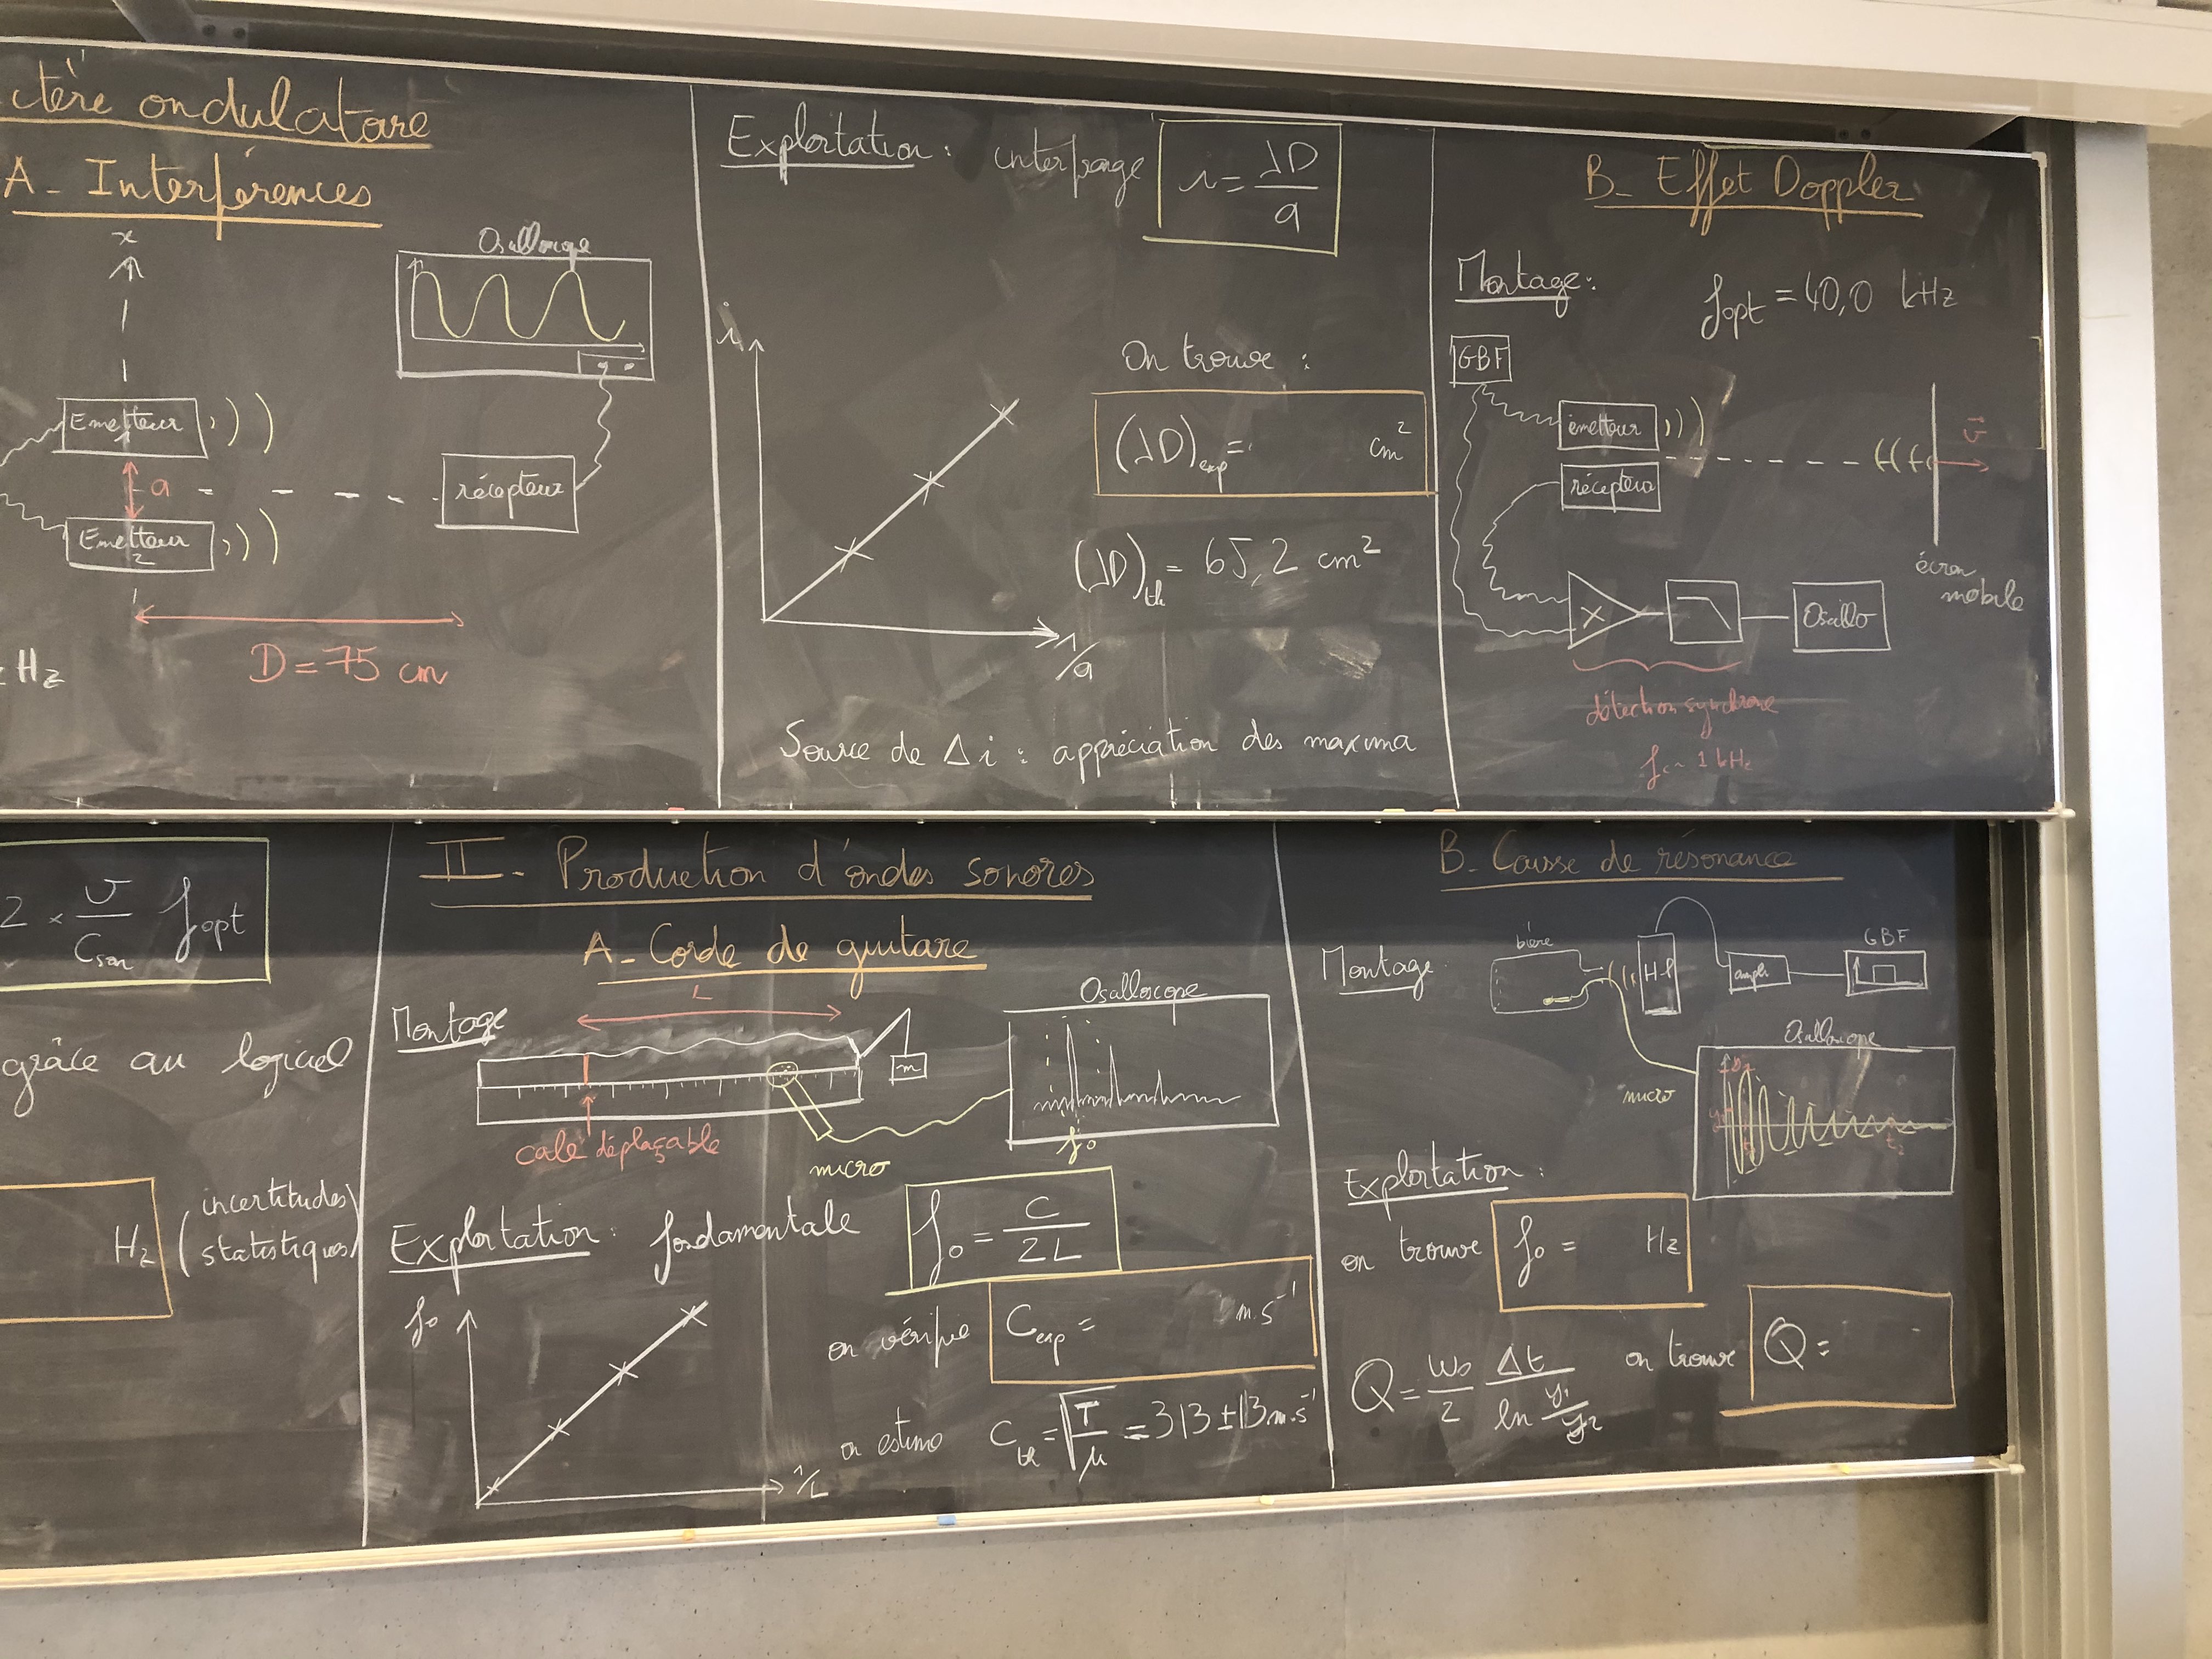 ctère ondulatoire
A - Interférences
x
Oscilloscope
Emetteur
1
a
récepteur
Emetteur
2
D = 75 cm
Hz
Exploitation : interfrange i = λD/a
i
1/a
On trouve :
(λD)exp = cm²
(λD)th = 65,2 cm²
Source de Δi : appréciation des maxima
B - Effet Doppler
Montage : fopt = 40,0 kHz
GBF
émetteur
récepteur
v⃗
écran
mobile
×
Oscillo
détection synchrone
fc ~ 1 kHz
2 × v/Cson fopt
grâce au logiciel
Hz (incertitudes
statistiques)
II - Production d'ondes sonores
A - Corde de guitare
Montage
L
Oscilloscope
m
f0
cale déplaçable
micro
Exploitation : fondamentale f0 = C/2L
f0
1/L
on vérifie Cexp = m.s⁻¹
on estime Cth = √(T/μ) = 313 ± 13 m.s⁻¹
B - Caisse de résonance
Montage
bière
HP
ampli
GBF
Oscilloscope
micro
y1
t1
y2
t2
Exploitation :
on trouve f0 = Hz
Q = ω0/2 Δt/ln y1/y2 on trouve Q =